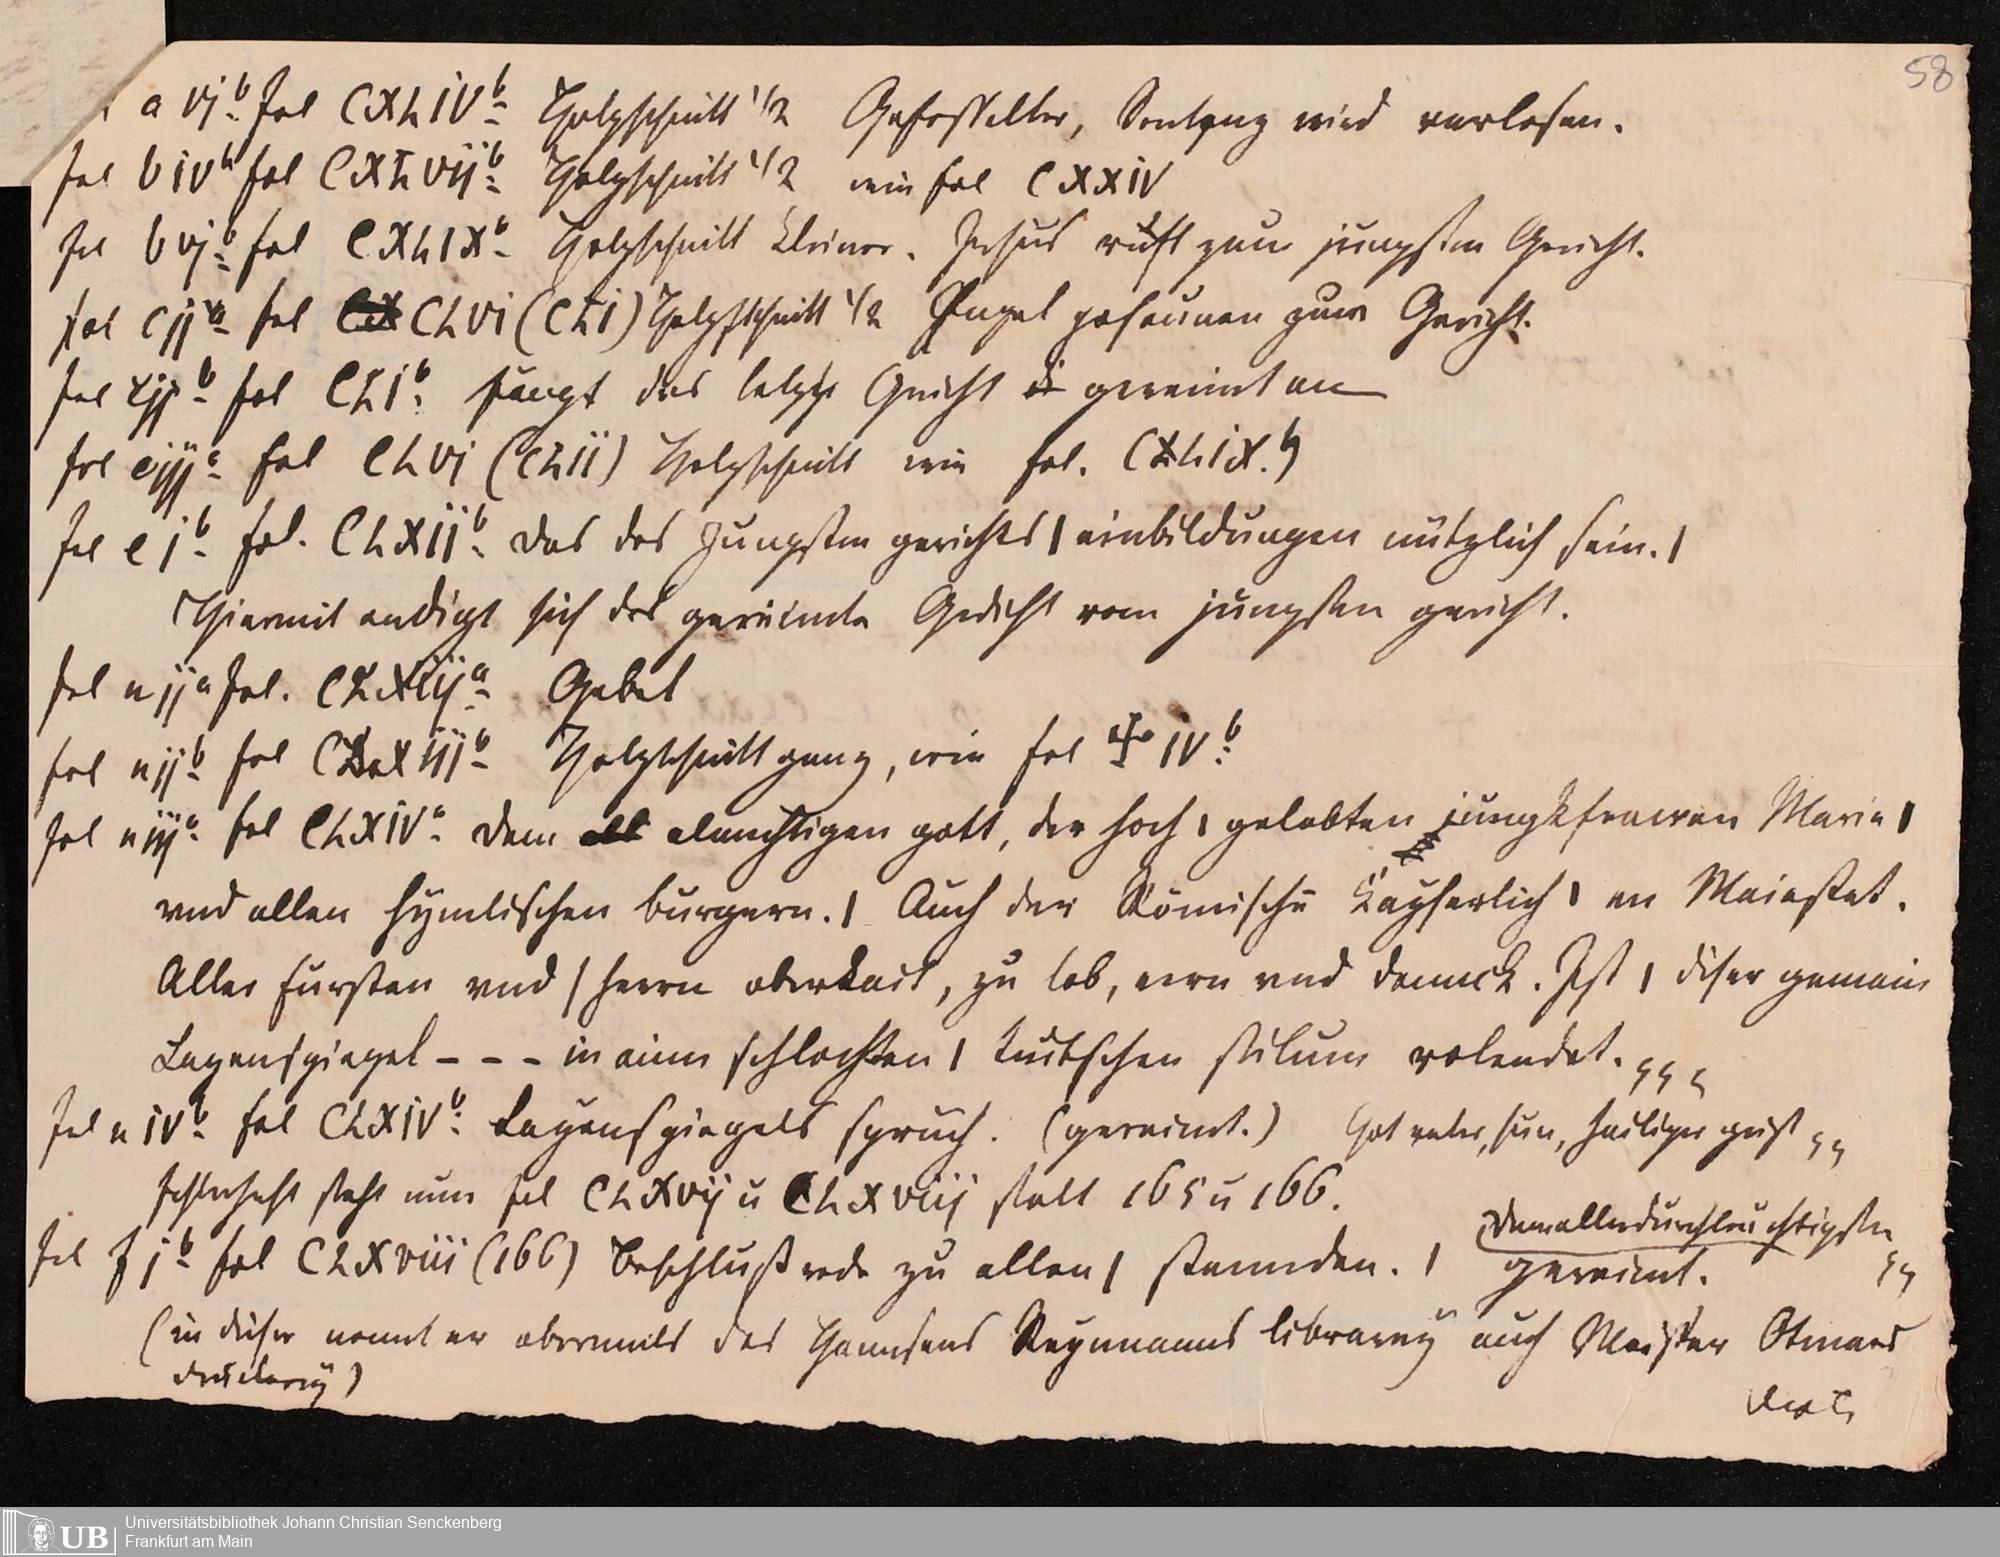 58
a vj b. fol CXLIV b. Holzschnitt 1/2 Gefesselter, Sentenz wird verlesen.
fol b iv b fol CXLVII b. Holzschnitt 1/2 wie fol CXXIV
fol b vj b. fol CXLIX b. Holzschnitt kleiner. Jesus ruft zum jungsten Gericht.
fol c jj a. fol CLVI (CLI) Holzschnitt 1/2 Engel posaunen zum Gericht.
fol c jj b. fol CLI b. fängt das letzte Gericht gereimt an
fol c jjj a. fol CLVI (CLII) Holzschnitt wie fol. CXLIX. b
fol e j b. fol. CLXII b. Das des Jungsten gerichts | einbildungen nützlich sein. |
Hiermit endigt sich das gereimte Gedicht vom jüngsten gericht.
fol n jj a fol. CLXIIJ a. Gebet
fol n jj b. fol CLXIIJ b. Holzschnitt ganz, wie fol iv b.
fol n jjj a. fol CLXIV a. Dem almechtigen gott, der hoch | gelobten jungkfrawen Marie |
vnd allen hymlischen burgern. | Auch der Römische Kayserlich | en Maiestet.
Aller fursten vnd | herrn oberkait, zu lob, eern vnd danck. Ist | diser gemain
Layenspiegel - - - in ainn schlechten | tuitschen stilum volendet.
fol n iv b. fol CLXIV b. Layenspiegels spruch. (gereimt.) Got vater, sun, heiliger geist
fehlerhaft steht nun fol CLXVIJ u CLXVIIJ statt 165 u 166.
Dem allerdurchleuchtigsten
fol j b. fol CLXVIII (166) Beschlußrede zu allen | stennden. | gereimt.
(in dieser nennt er abermals des Hannsens Reynmanns librarey auch Meister Otmars
druckerey)